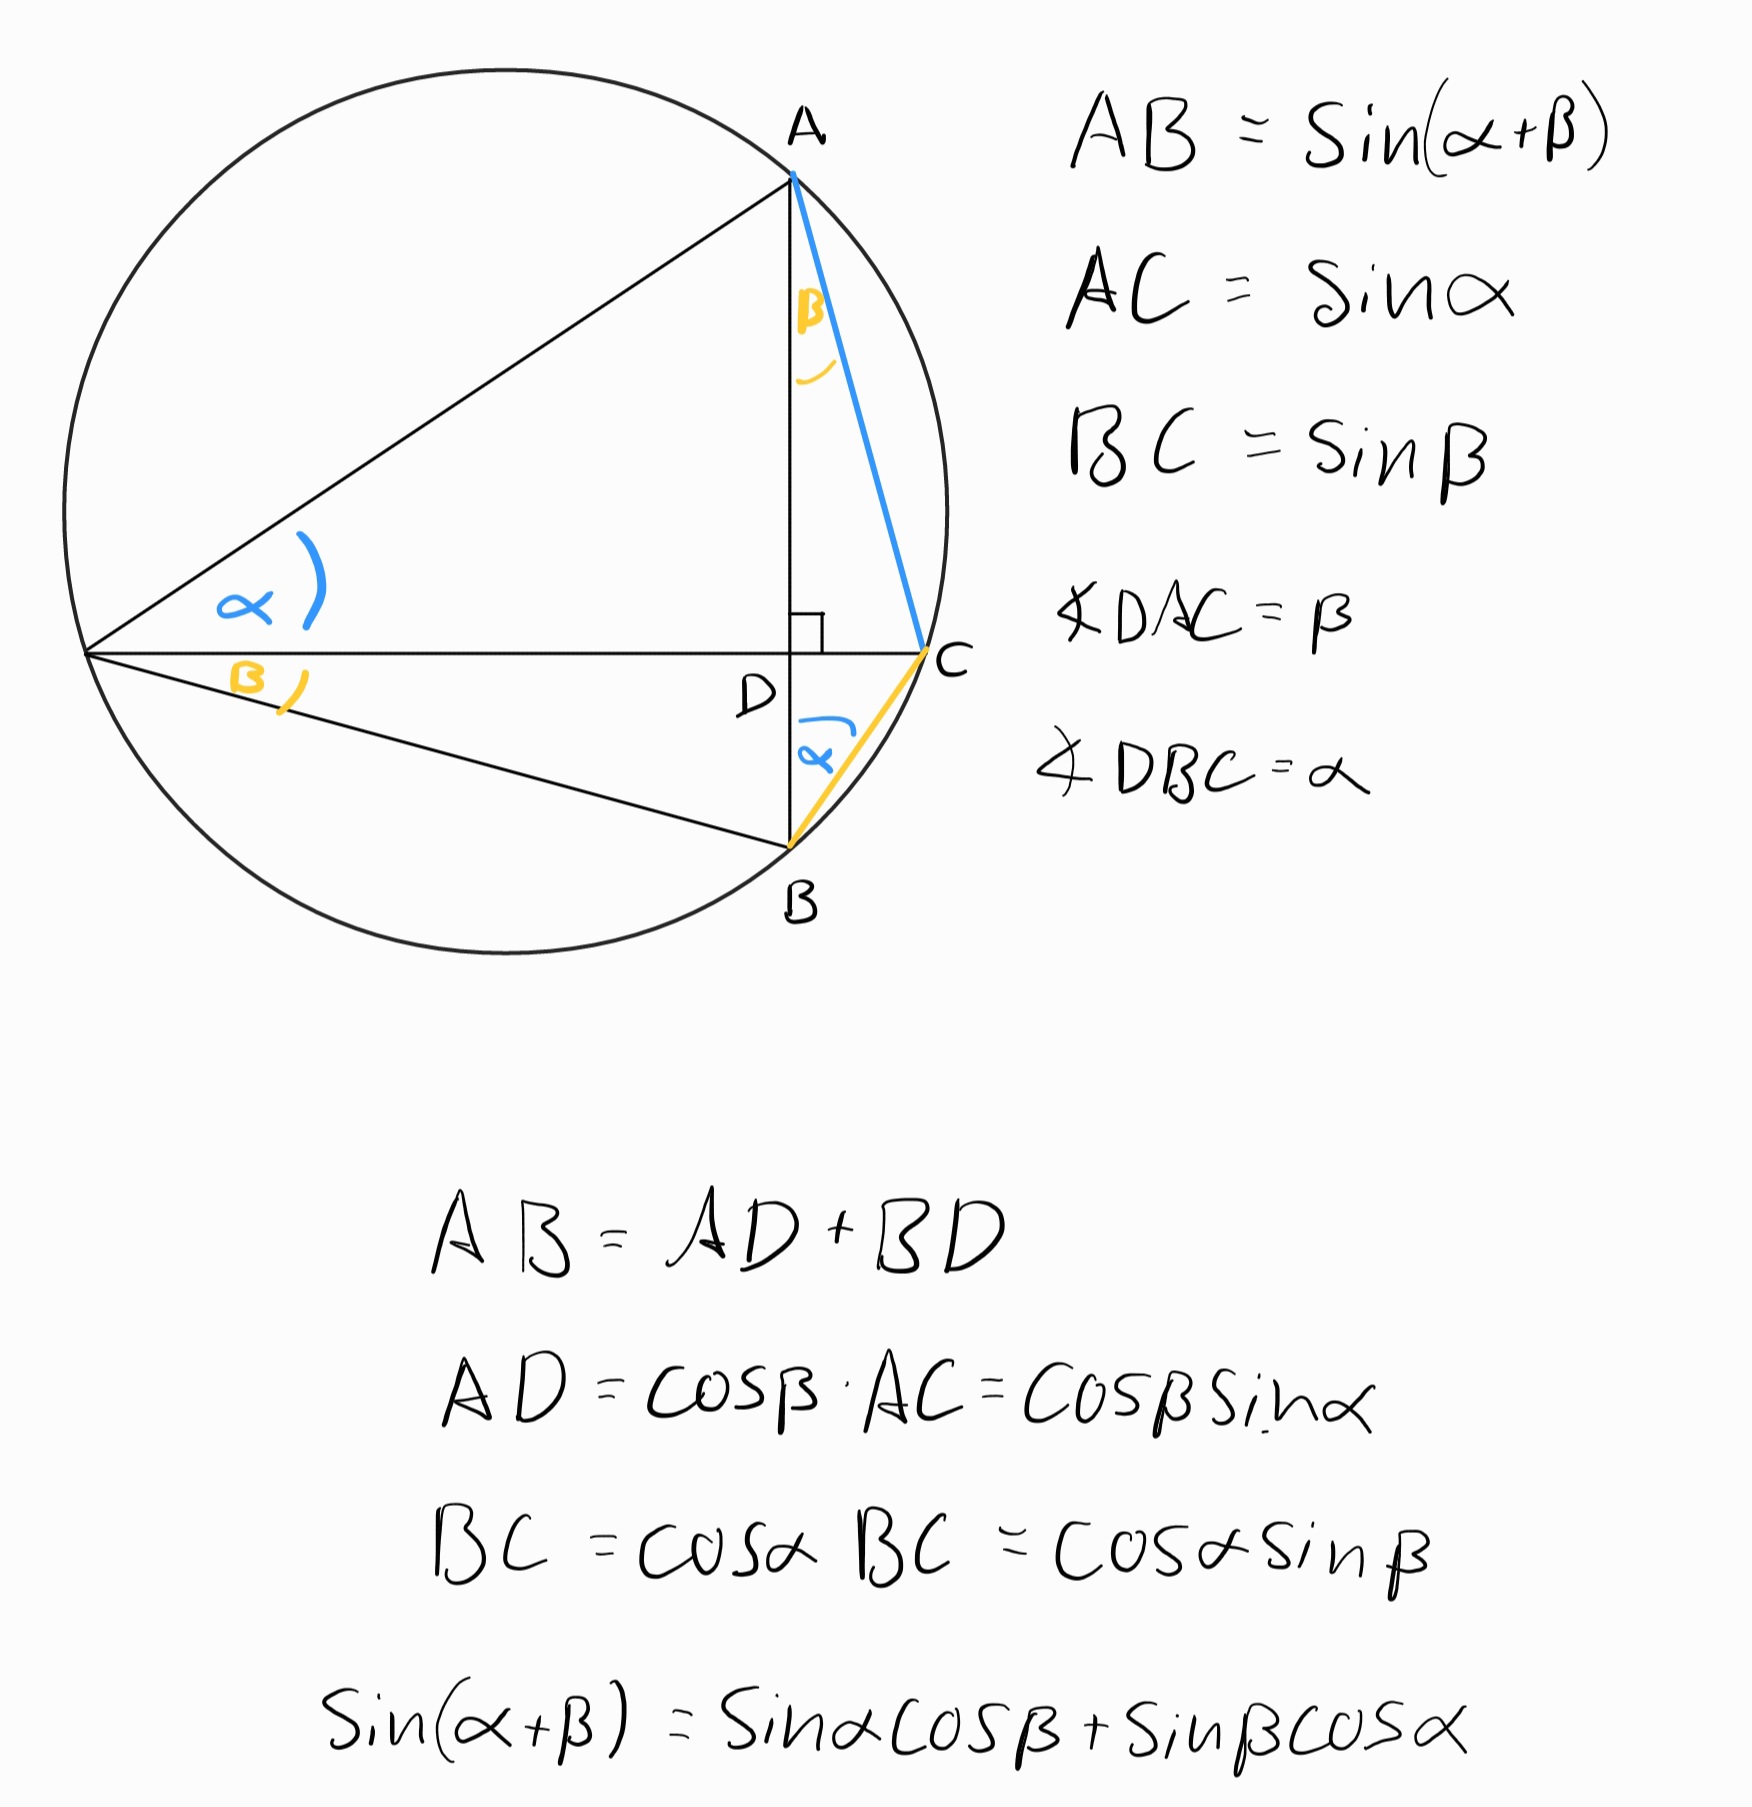 A
AB = Sin(α+β)
β
AC = Sinα
BC = Sinβ
α
∡DAC = β
β
C
D
α
∡DBC = α
B
AB = AD + BD
AD = cosβ · AC = Cosβ Sinα
BC = cosα BC = Cosα Sinβ
Sin(α+β) = Sinα Cosβ + Sinβ Cosα